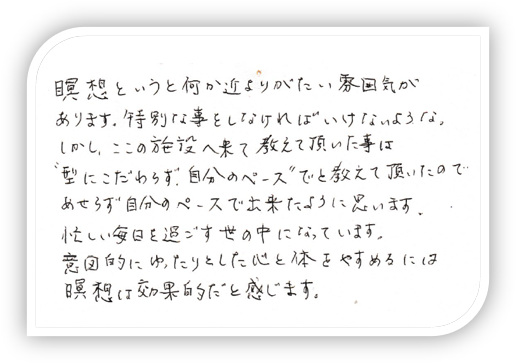 瞑想というと何か近よりがたい雰囲気が
あります。特別な事をしなければいけないような。
しかし、ここの施設へ来て教えて頂いた事は
"型にこだわらず、自分のペース"でと教えて頂いたので
あせらず自分のペースで出来たように思います。
忙しい毎日を過ごす世の中になっています。
意図的にゆったりとした心と体をやすめるには
瞑想は効果的だと感じます。